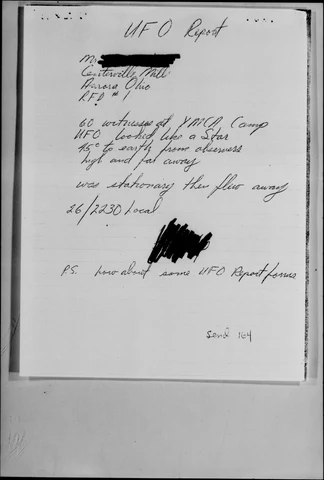 UFO Report
Mr
Centerville Mills
Aurora Ohio
RFD # 1
60 witnesses at YMCA Camp
UFO looked like a Star
45° to earth from observers
high and far away
was stationary then flew away
26/2230 Local
P.S. how about some UFO Report forms
Send 164